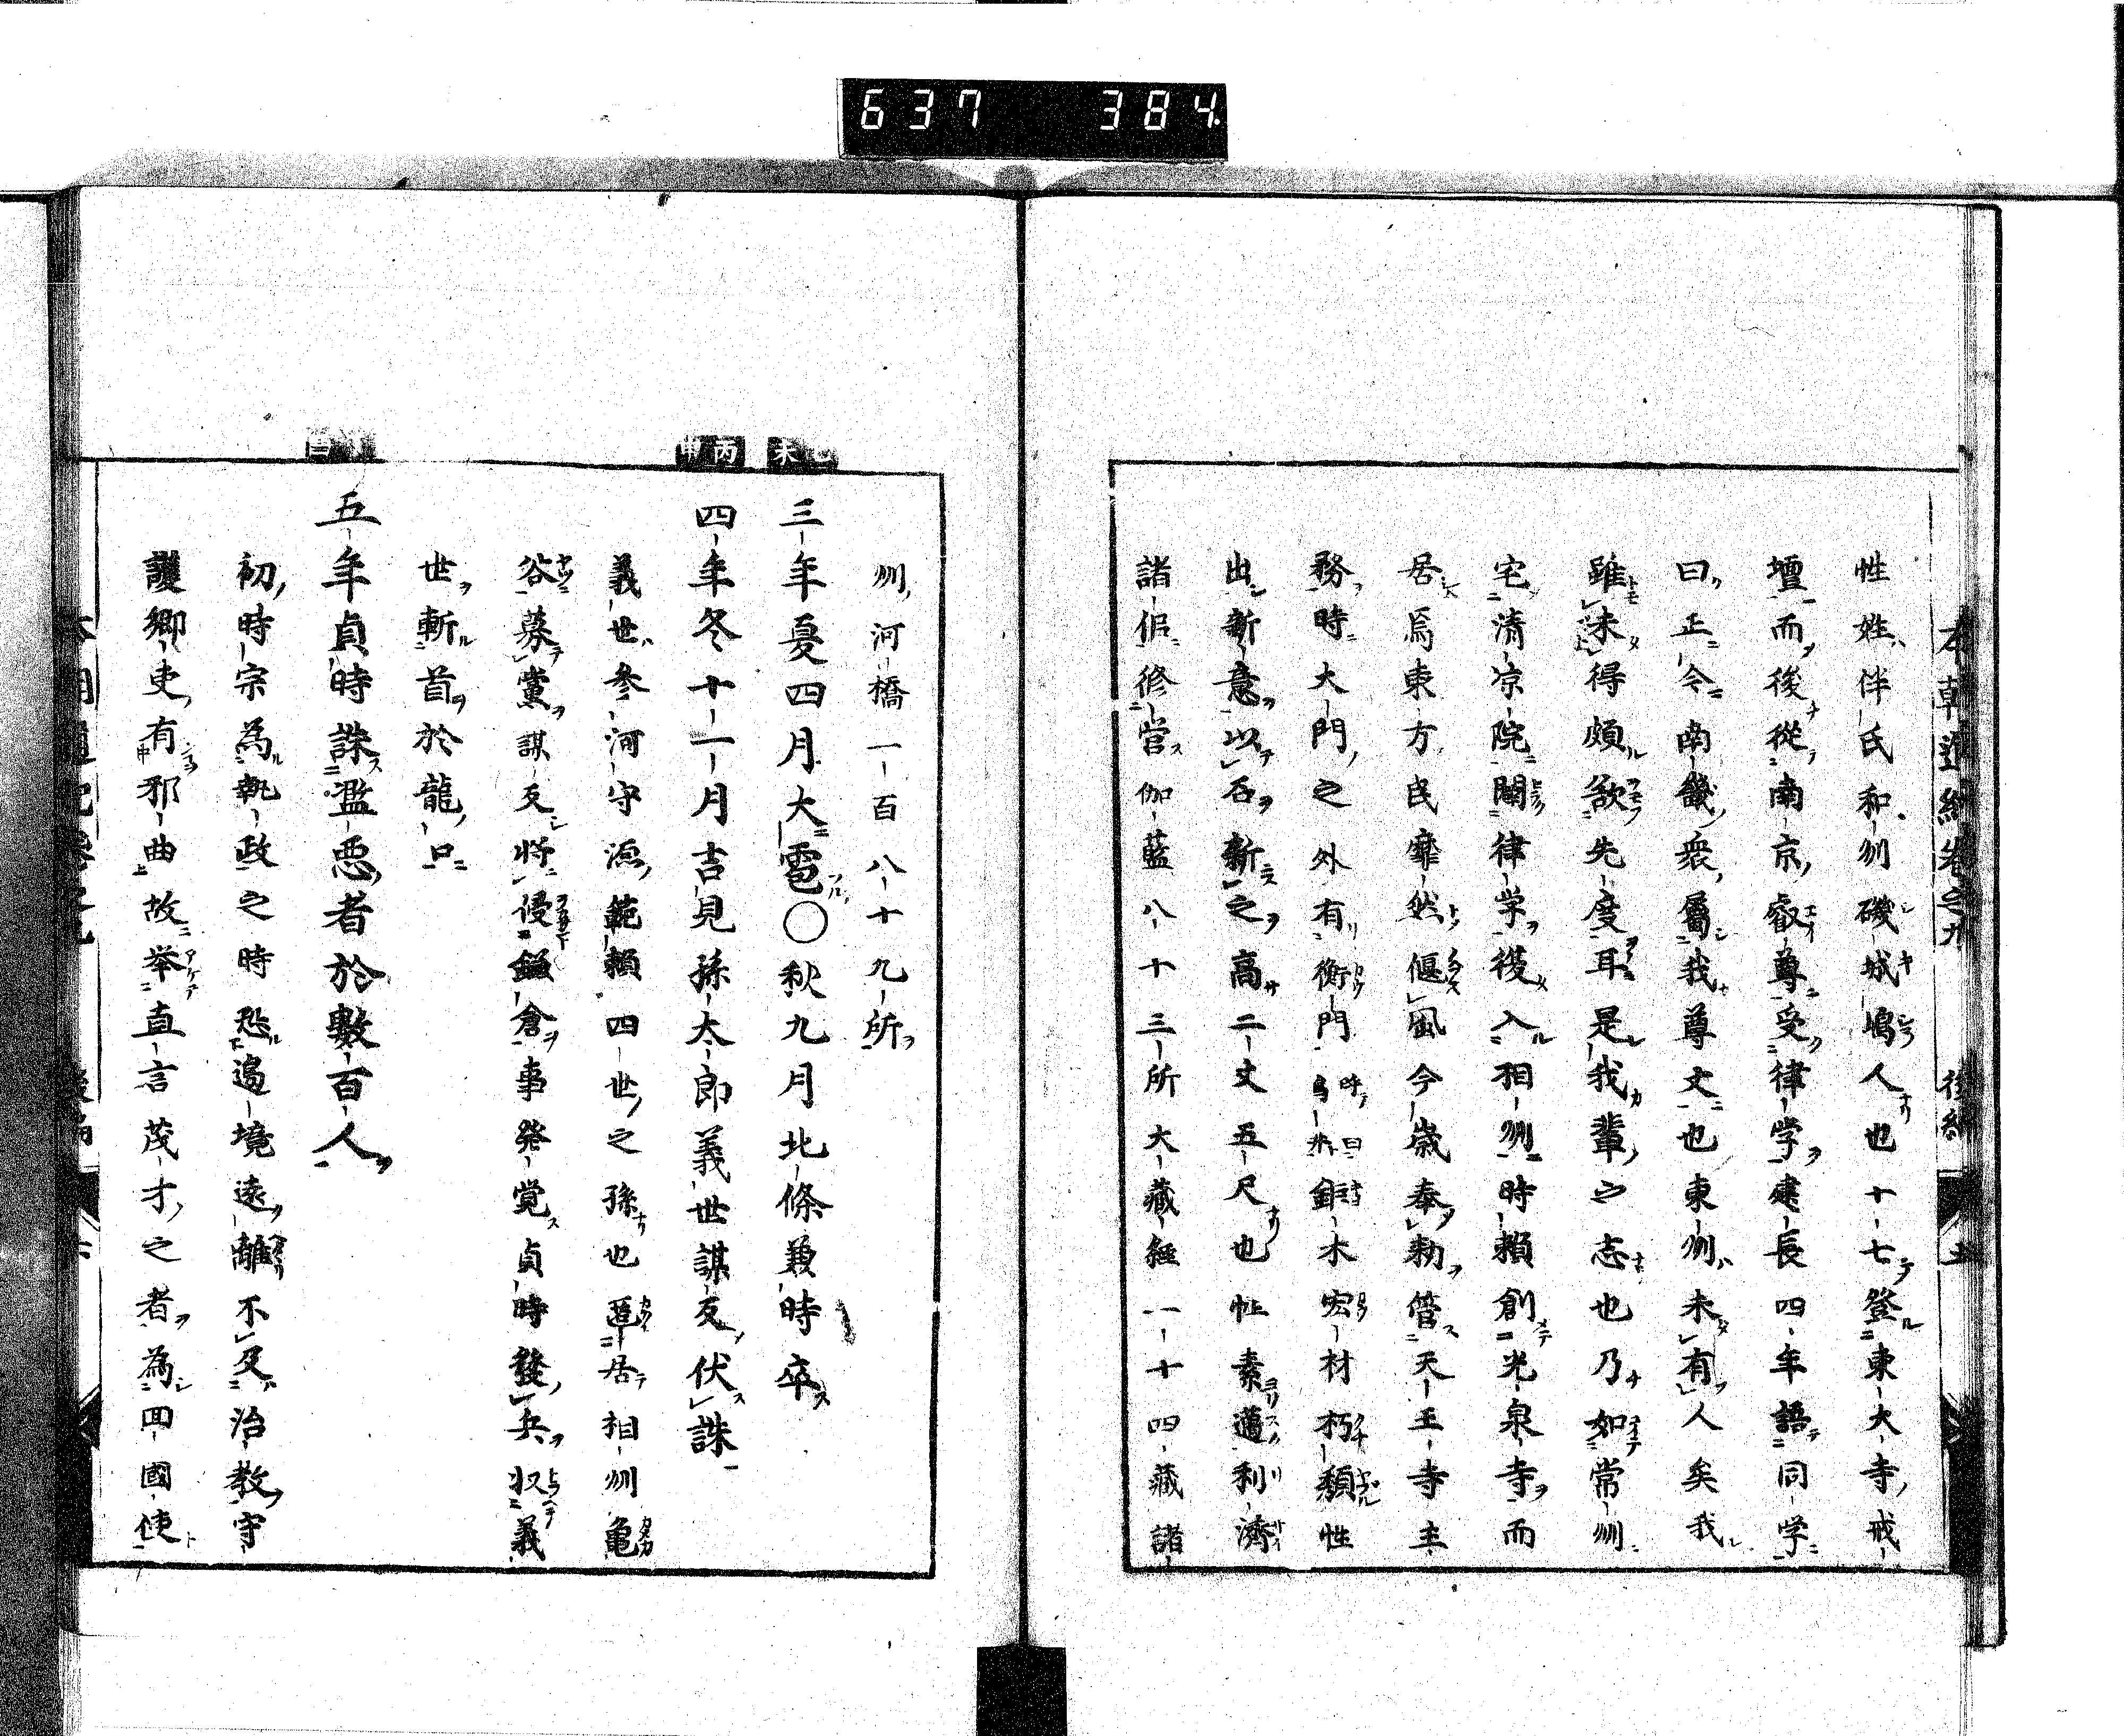 637 384
性姓伴氏和刕磯城嶋人也十七登東大寺戒
壇而後從南京叡尊受律学建長四年語同学
曰正今南畿衆屬我尊丈也東州未有人矣我
雖未得頗欲先度耳是我輩之志也乃如常州
宅清凉院闡律学後入相州時頼創光泉寺而
居焉東方民靡然偃風今歳奉勅管天王寺主
務時大門之外有衡門呼曰鳥居釿木宏材朽頽性
出新意以石新之高二丈五尺也性素邁利濟
諸佀修営伽藍八十三所大藏経一十四藏諸
州河橋一百八十九所
三年夏四月大雹〇秋九月北條兼時卒
四年冬十一月吉見孫太郎義世謀反伏誅
義世参河守源範頼四世之孫也匿居相州亀
谷募黨謀反将侵鎌倉事発覚貞時發兵收義
世斬首於龍口
五年貞時誅濫悪者於數百人
初時宗為執政之時恐邊境遠離不及治教守
護郷吏有邪曲故挙直言茂才之者為四國使